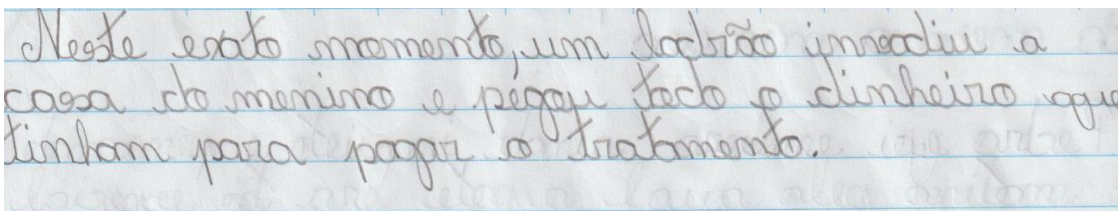 Neste exato momento, um ladrão invadiu a
casa do menino e pegou todo o dinheiro que
tinham para pagar o tratamento.